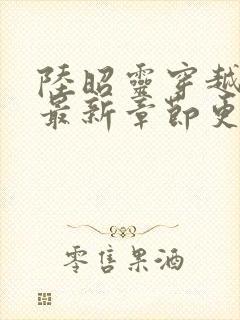 陸昭靈穿越
最新章節更
零售果酒